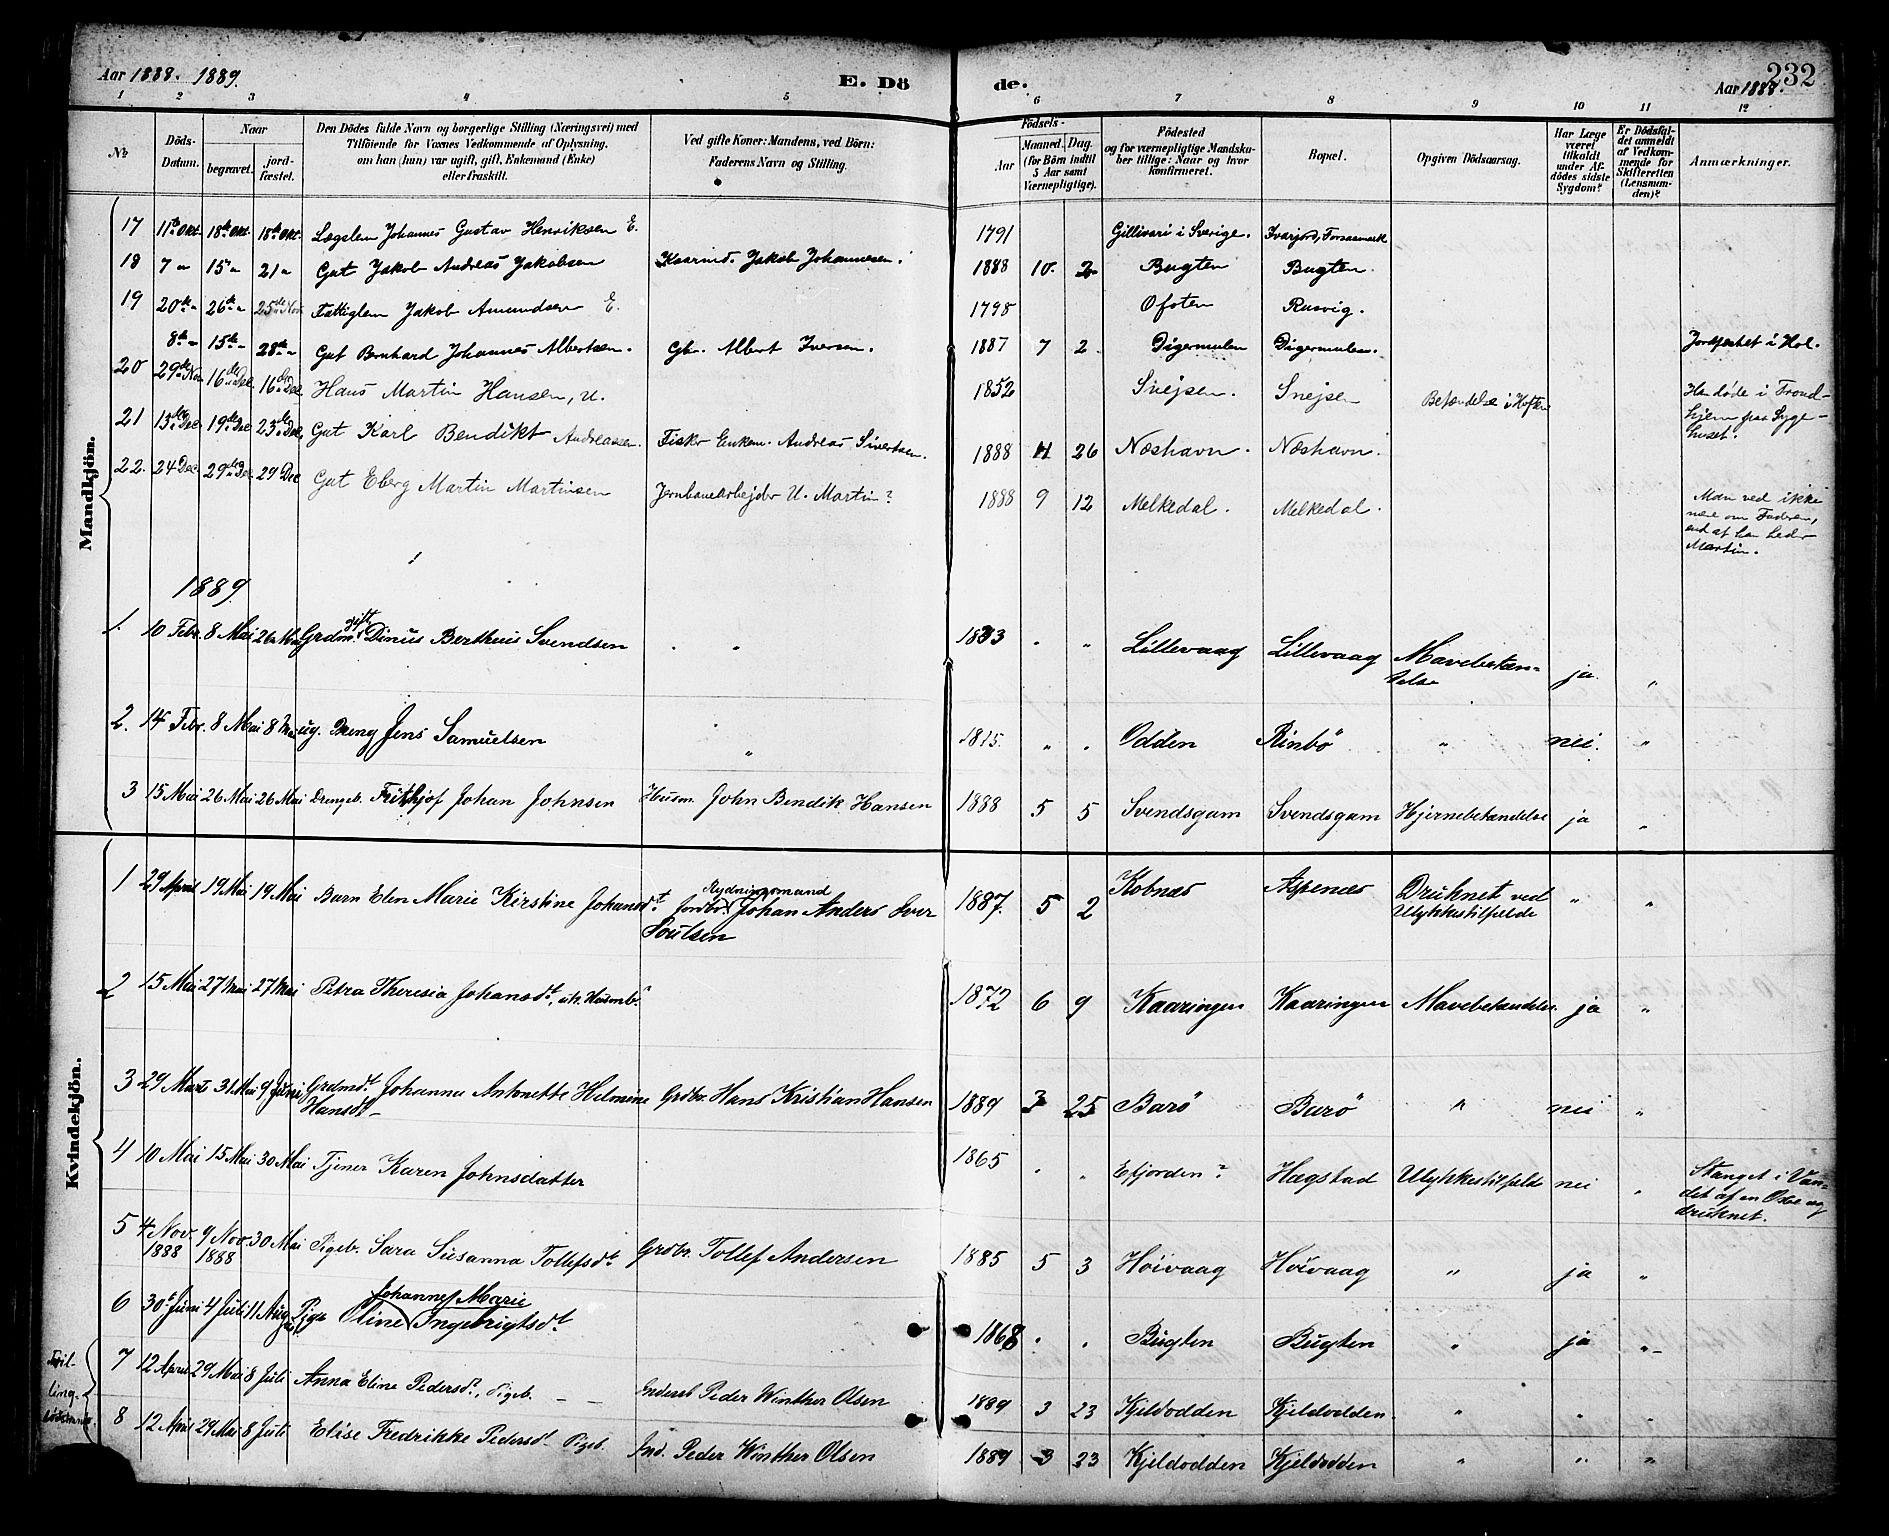 Aar 1888. 1889. E. Dö de. Aar 1888. 232
1 2 3 4 5 6 7 8 9 10 11 12
No Döds-Datum. Naar begravet. jord-fæstet. Den Dödes fulde Navn og borgerlige Stilling (Næringsvei) med Tilföiende for Voxnes Vedkommende af Oplysning, om han (hun) var ugift, gift, Enkemand (Enke) eller fraskilt. Ved gifte Koner: Mandens, ved Börn: Faderens Navn og Stilling. Födsels- Aar Maaned. Dag. (for Börn indtil 5 Aar samt Værnepligtige). Födested og for værnepligtige Mandskaber tillige: Naar og hvor konfirmeret. Bopæl. Opgiven Dödsaarsag. Har Læge været tilkaldt under Afdödes sidste Sygdom? Er Dödsfaldet anmeldt af Vedkommende for Skifteretten (Lensmanden)? Anmærkninger.
Mandkjön.
17 11te Okt. 18de Okt. 18de Okt. Lægslem Johannes Gustav Henriksen E. 1791 Gillivari i Sverige. Ivarjord, Forsaamark
18 7 " 15 " 21 " Gut Jakob Andreas Jakobsen Kaarmd. Jakob Johannesen. 1888 10. 2 Bugten Bugten.
19 20de " 26de " 25de Nov Fattiglem Jakob Amundsen E. 1798 Ofoten Rusvig.
8de " 15de " 28de " Gut Bernhard Johannes Albertsen. Gbr. Albert Iversen. 1887 7 2 Digermulen Digermulen. Jordfæstet i Hol.
20 29de Nov 16de Dec 16de Dec Hans Martin Hansen, u. 1852 Snejsen. Snejsen Betændelse i Hoften Han døde i Trond-
hjem paa Syge-
huset.
21 13de Dec 19de Dec 23de Dec. Gut Karl Bendikt Andreassen. Fisker Enkem. Andreas Sivertsen. 1888 11 26 Næshavn. Næshavn.
22. 24 Dec. 29de Dec 29 Dec Gut Eberg Martin Martinsen Jernbanearbejder U. Martin? 1888 9 12 Melkedal. Melkedal. Man ved ikke
mere om Faderen,
end at han heder
Martin.
1889
1. 10 Febr. 8 Mai 26 Mai Grdm. gift Dinus Bertheus Svendsen " " 1833 " " Lillevaag Lillevaag Mavebetæn-
delse ja "
2. 14 Febr. 8 Mai 8 Mai ug. Dreng Jens Samuelsen " " 1815. " " Odden Rinbö " nei. "
3 15 Mai 26 Mai 26 Mai Drengeb. Frithjof Johan Johnsen Husm. John Bendik Hansen 1888 5 5 Svendsgam Svendsgam Hjernebetændelse ja "
Kvindekjön.
1 29 April 19 Mai 19 Mai Barn Elen Marie Kirstine Johansdt. Rydningsmand
Jordbr. Johan Anders Iver
Poulsen 1887. 5 2 Kobnæs Aspenæs Druknet ved
Ulykkestilfælde " "
2 15 Mai 27 Mai 27 Mai Petra Theresia Johansdt, Husmb. 1872 6 9 Kaaringen Kaaringen Mavebetændelse. ja "
3 29 Marts 31 Mai 9 Juni Grdmdt. Johanna Antonette Helmine
Hansdt Grdbr. Hans Kristian Hansen 1889 3 25 Barö Barö " nei "
4 10 Mai 15 Mai 30 Mai Tjener Karen Johnsdatter 1865 " " Efjorden? Hægstad Ulykkestilfælde nei " Stanget i Van-
det af en Oxe og
druknet.
5 4 Nov. 1888 9 Nov. 1888 30 Mai Pigeb. Sara Susanna Tollefsdt Grdbr. Tollef Andersen 1885 5 3 Höivaag Höivaag " ja "
6 30t Juni 4 Juli 11 August Pige Oline Johanne Marie
Ingebrigtsdt. 1868 " " Bugten Bugten " ja "
7 12 April 29 Mai 8 Juli Anna Eline Pedersdt, Pigeb. Inderst Peder Winther Olsen 1889 3 23 Kjeldodden Kjeldodden. " " "
8 12 April 29 Mai 8 Juli Elise Fredrikke Pedersdt Pigeb. Ind. Peder Winther Olsen 1889 3 23 Kjeldodden Kjeldodden " " "